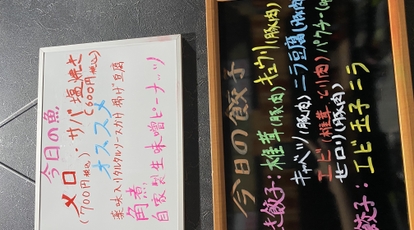 今日の魚
メロ・サバ塩焼き
(700円税込) (600円税込)
オススメ
薬味入りタルタルソースがけ 揚げ豆腐
角煮
自家製生味噌ピーナッツ
今日の餃子
餃子:椎茸(豚肉) キュウリ(豚肉)
キャベツ(豚肉) ニラ豆腐(豚肉)
エビ(椎茸、とり肉) パクチー
セロリ(豚肉)
餃子:エビ 玉子 ニラ